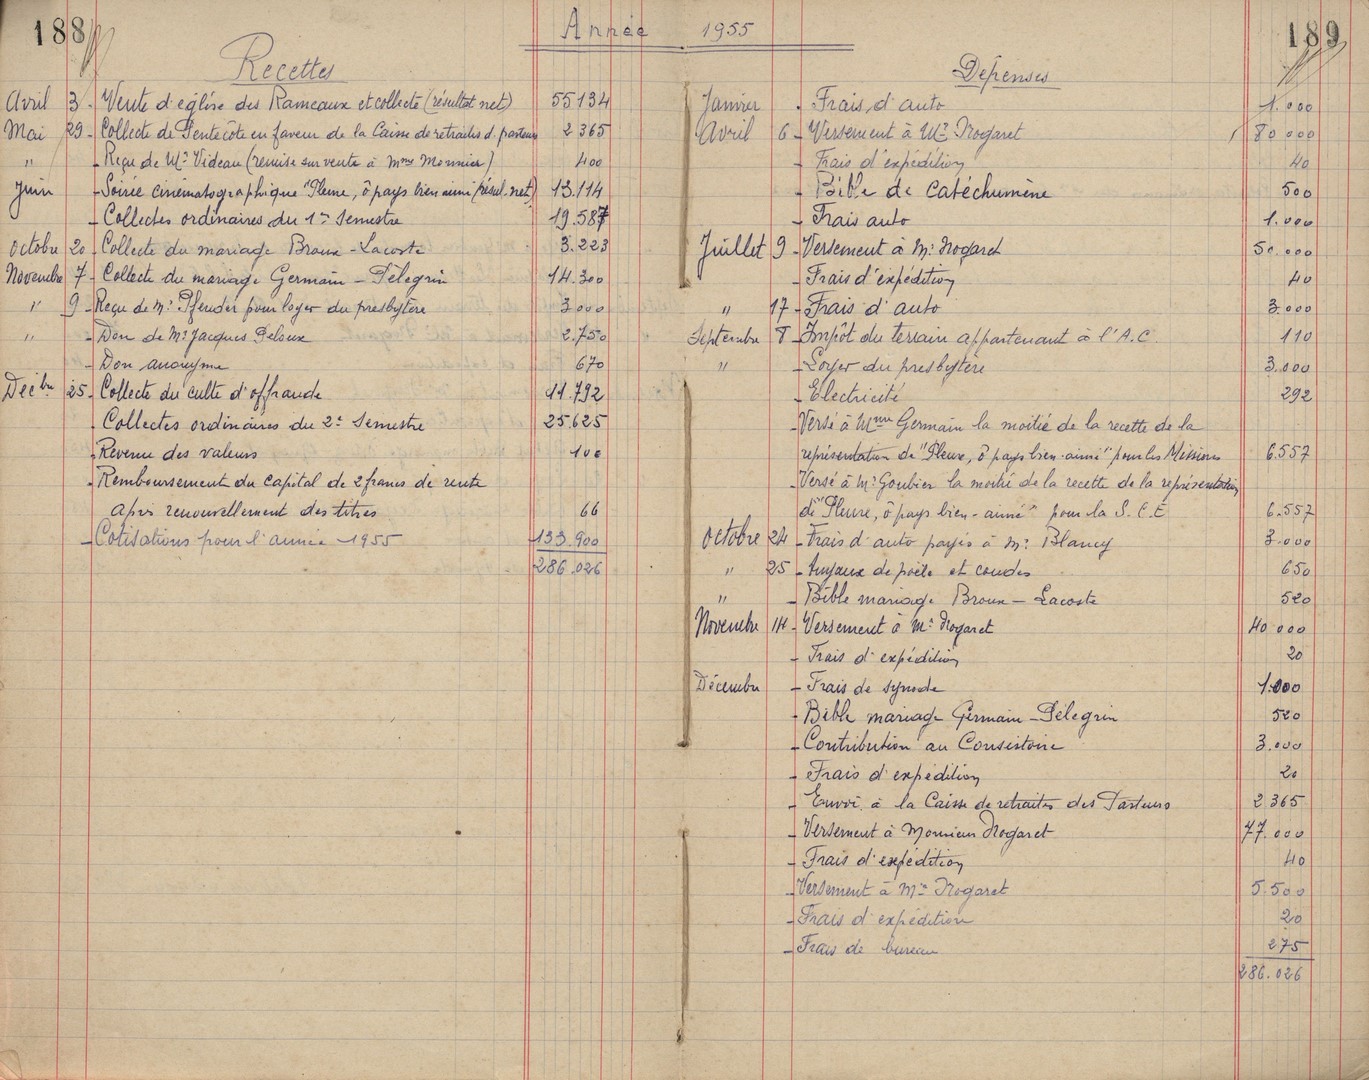 188
Année 1955
189
Recettes
Avril 3 - Vente d'église des Rameaux et collecte (résultat net) 55134
Mai 29 - Collecte de Pentecôte en faveur de la Caisse de retraites d. pasteurs 2365
" - Reçu de Mr Videau (remise sur vente à Mme Monnier) 400
Juin - Soirée cinématographique "Pleure, ô pays bien aimé" (résul. net) 13.114
- Collectes ordinaires du 1er semestre 19.587
Octobre 20 - Collecte du mariage Broux - Lacoste 3.223
Novembre 7 - Collecte du mariage Germain - Pélegrin 14.300
" 9 - Reçu de Mr Pfender pour loyer du presbytère 3000
" - Don de Mr Jacques Peloux 2.750
- Don anonyme 670
Décbre 25 - Collecte du culte d'offrande 11.792
- Collectes ordinaires du 2e Semestre 25.625
- Revenu des valeurs 100
- Remboursement du capital de 2 francs de rente
après renouvellement des titres 66
- Cotisations pour l'année 1955 133.900
286.026
Dépenses
Janvier - Frais d'auto 1.000
Avril 6 - Versement à Mr Nogaret 80000
- Frais d'expédition 40
- Bible de Catéchumène 500
- Frais auto 1.000
Juillet 9 - Versement à Mr Nogaret 50.000
- Frais d'expédition 40
" 17 - Frais d'auto 3.000
Septembre 8 - Impôt du terrain appartenant à l'A.C. 110
" - Loyer du presbytère 3.000
- Electricité 292
- Versé à Mme Germain la moitié de la recette de la
représentation de "Pleure, ô pays bien-aimé" pour les Missions 6.557
- Versé à Mr Goubier la moitié de la recette de la représentation
de "Pleure, ô pays bien-aimé" pour la S.C.E 6.557
Octobre 24 - Frais d'auto payés à Mr Blancy 3.000
" 25 - Tuyaux de poële et coudes 650
" - Bible mariage Broux - Lacoste 520
Novembre 14 - Versement à Mr Nogaret 40.000
- Frais d'expédition 20
Décembre - Frais de synode 1.000
- Bible mariage Germain - Pélegrin 520
- Contribution au Consistoire 3.000
- Frais d'expédition 20
- Envoi à la Caisse de retraites des Pasteurs 2365
- Versement à Monsieur Nogaret 77.000
- Frais d'expédition 40
- Versement à Mr Nogaret 5.500
- Frais d'expédition 20
- Frais de bureau 275
286.026